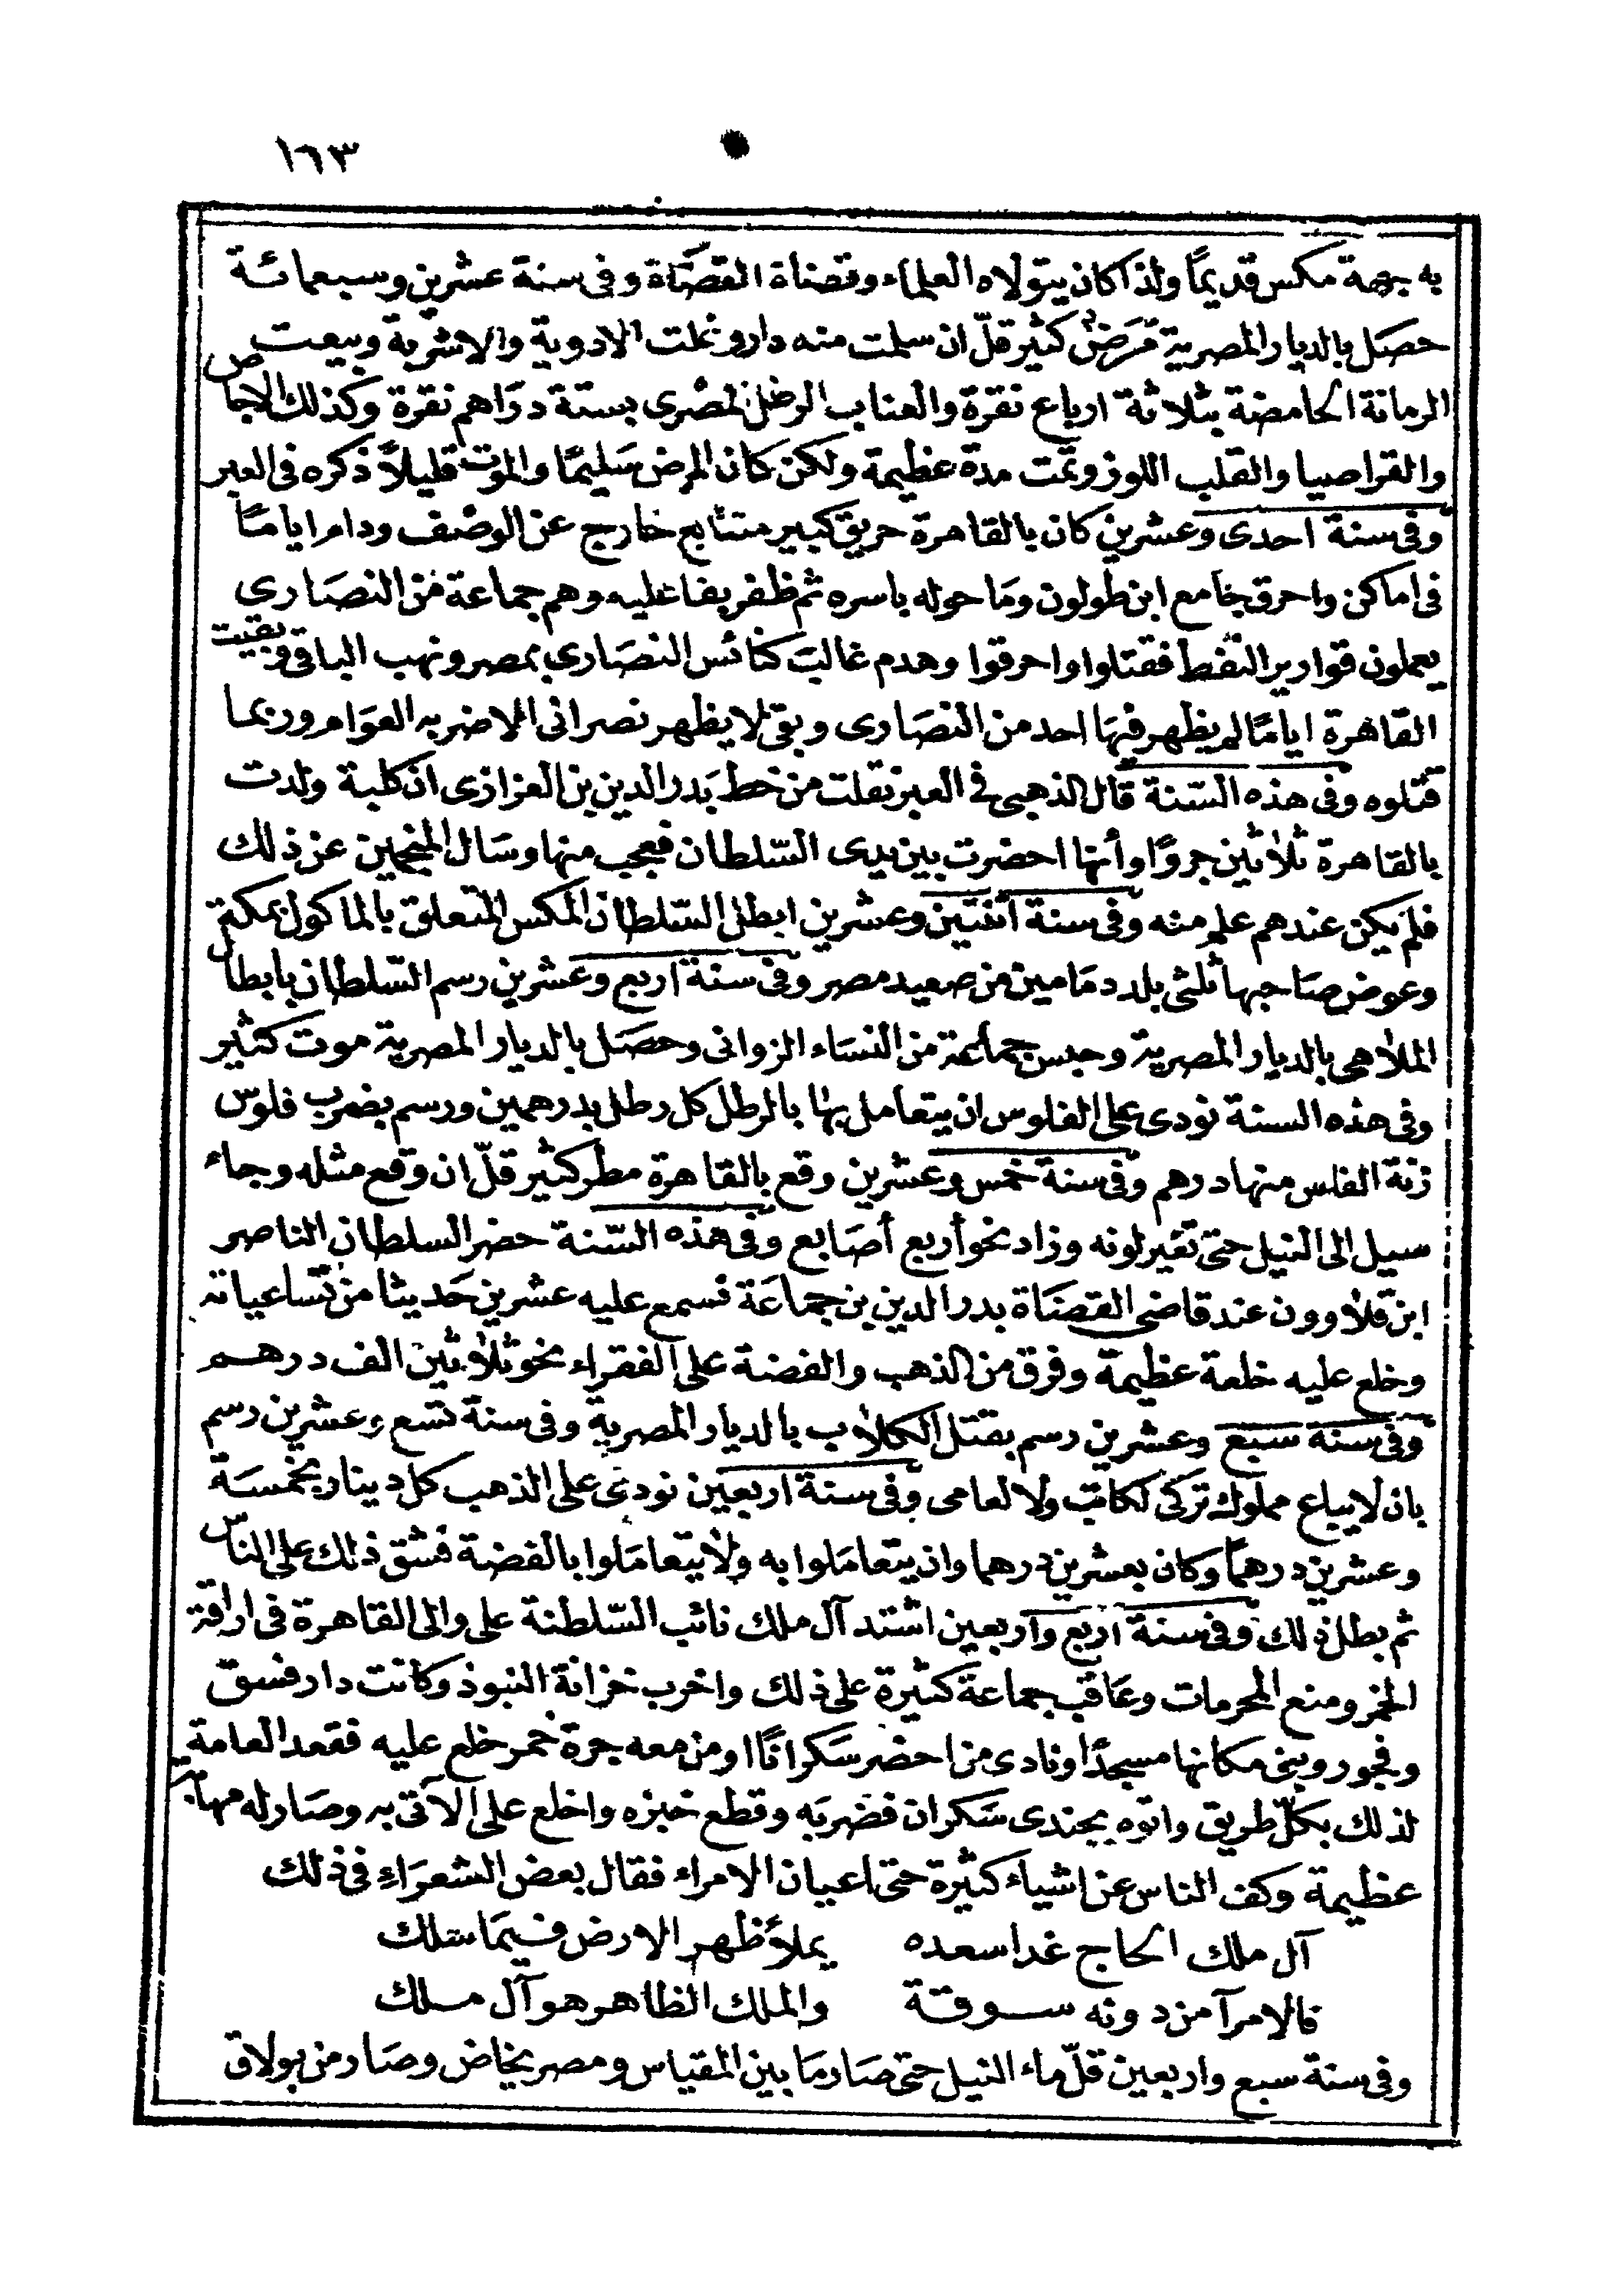 ١٦٣
به جهة مكس قديمًا ولذا كان يتولاه العلماء وقضاة القضاة وفى سنة عشرين وسبعمائة
حصل بالديار المصرية مرض كثير قلّ ان سلمت منه دار وغلت الادوية والاشربة وبيعت
الرمانة الحامضة بثلاثة ارباع نقرة والعناب الرطل المصرى بستة دراهم نقرة وكذلك الاجاص
والقراصيا والقلب اللوز وتمت مدة عظيمة ولكن كان المرض سليمًا والموت قليلاً ذكره فى العبر
وفى سنة احدى وعشرين كان بالقاهرة حريق كبير متتابع خارج عن الوصف ودام اياما
فى اماكن واحرق جامع ابن طولون وما حوله باسره ثم ظفر بفاعليه وهم جماعة من النصارى
يعملون قوارير النفط فقتلوا واحرقوا وهدم غالب كنائس النصارى بمصر ونهب الباقى وبقيت
القاهرة ايامًا لم يظهر فيها احد من النصارى وبقى لا يظهر نصرانى الا ضربه العوام وربما
قتلوه وفى هذه السّنة قال الذهبى فى العبر نقلت من خط بدر الدين بن العزازى ان كلبة ولدت
بالقاهرة ثلاثين جروًا وأنها احضرت بين يدى السّلطان فعجب منها وسال المنجمين عن ذلك
فلم يكن عندهم علم منه وفى سنة اثنتين وعشرين ابطل السّلطان المكس المتعلق بالماكول بمكة
وعوض صاحبها ثلثى بلد دمامين من صعيد مصر وفى سنة اربع وعشرين رسم السّلطان بابطال
الملاهى بالديار المصرية وحبس جماعة من النساء الزوانى وحصل بالديار المصرية موت كثير
وفى هذه السنة نودى على الفلوس ان يتعامل بها بالرطل كل رطل بدرهمين ورسم بضرب فلوس
زنة الفلس منها درهم وفى سنة خمس وعشرين وقع بالقاهرة مطر كثير قلّ ان وقع مثله وجاء
سيل الى النيل حتى تغير لونه وزاد نحو أربع أصابع وفى هذه السّنة حضر السلطان الناصر
ابن قلاوون عند قاضى القضاة بدر الدين بن جماعة فسمع عليه عشرين حديثا من تساعياته
وخلع عليه خلعة عظيمة وفرق من الذهب والفضة على الفقراء نحو ثلاثين الف درهم
وفى سنة سبع وعشرين رسم بقتل الكلاب بالديار المصرية وفى سنة تسع وعشرين رسم
بان لا يباع مملوك تركى لكاتب ولا لعامى وفى سنة اربعين نودى على الذهب كل دينار بخمسة
وعشرين درهمًا وكان بعشرين درهما وان يتعاملوا به ولا يتعاملوا بالفضة فشق ذلك على الناس
ثم بطل ذلك وفى سنة اربع واربعين اشتد آل ملك نائب السّلطنة على والى القاهرة فى اراقة
الخمر ومنع المحرمات وعاقب جماعة كثيرة على ذلك واخرب خزانة النبوذ وكانت دار فسق
وفجور وبنى مكانها مسجدًا ونادى من احضر سكرانًا او من معه جرة خمر خلع عليه فقعد العامة
لذلك بكلّ طريق واتوه بجندى سكران فضربه وقطع خبزه واخلع على الآتى به وصار له مهابة
عظيمة وكف الناس عن اشياء كثيرة حتى اعيان الامراء فقال بعض الشعراء فى ذلك
آل ملك الحاج غدا سعده يملأ ظهر الارض فيما سلك
فالامرآ من دونه سوقة والملك الظاهر هو آل ملك
وفى سنة سبع واربعين قلّ ماء النيل حتى صار ما بين المقياس ومصر يخاض وصار من بولاق